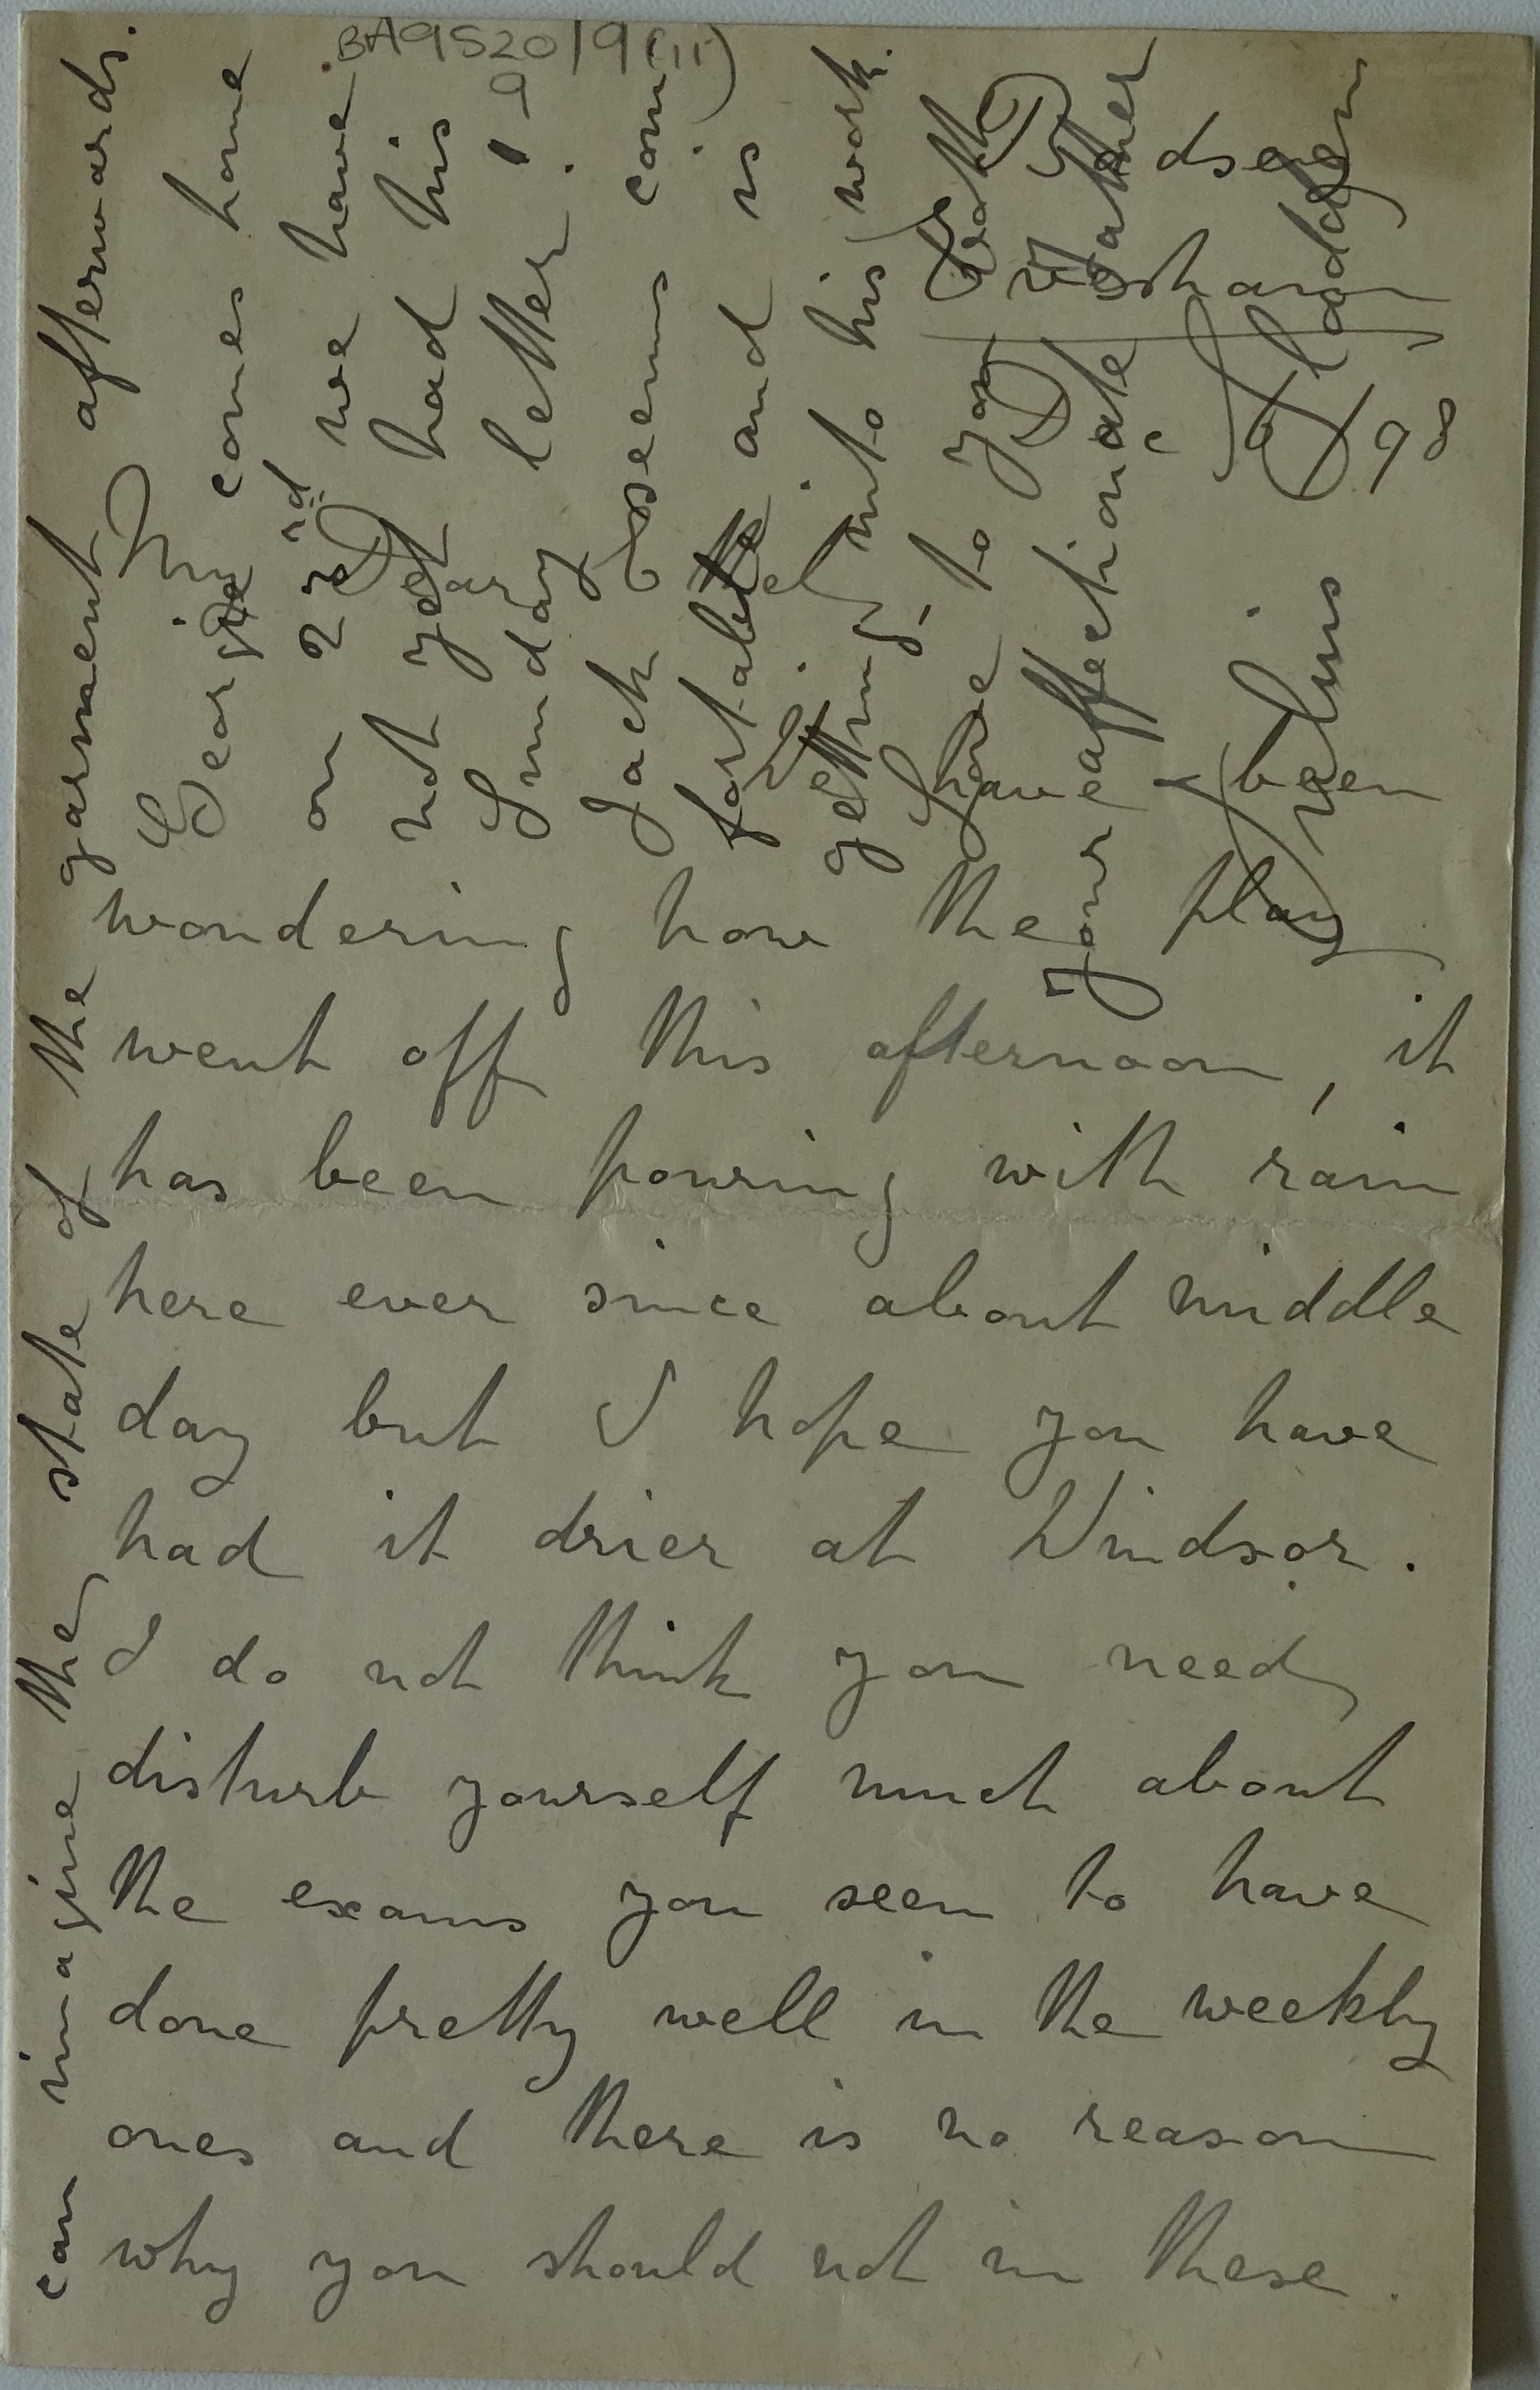 BA9520/9(11)
9
Badsey
Evesham
Dec 6/98
My Dear Ethel
We have been
wondering how the play
went off this afternoon, it
has been pouring with rain
here ever since about middle
day but I hope you have
had it drier at Windsor.
I do not think you need
disturb yourself much about
the exams you seem to have
done pretty well in the weekly
ones and there is no reason
why you should not in these.
can imagine the state of the garment afterwards.
George comes home
on 23rd we have
not yet had his
Sunday letter.
Jack seems com
fortable and is
getting into his work.
Love to you both
Your affectionate Father
Julius Sladden